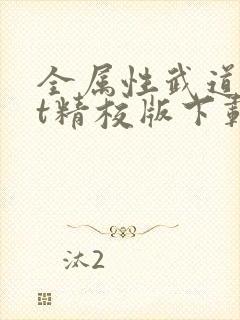 全属性武道
t精校版下载
汰2